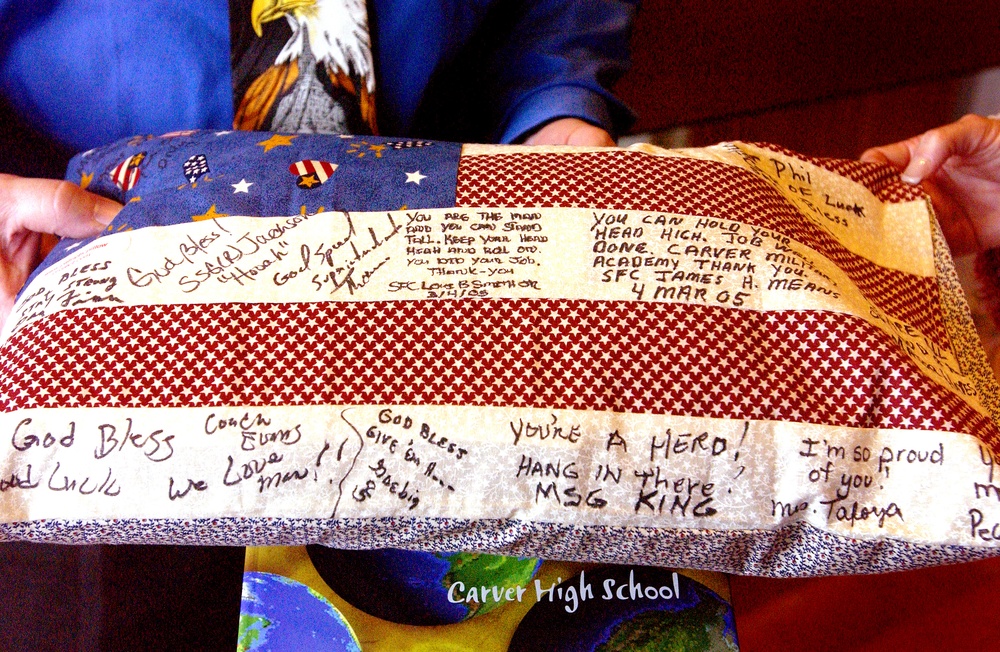 Phil
OF Luck
Bless
BLESS
Strong
God Bless!
SSG(R) Jackson
"Hooah"
God Speed
YOU ARE THE MAN
AND YOU CAN STAND
TALL. KEEP YOUR HEAD
HIGH AND ROLL ON.
YOU DID YOUR JOB.
THANK-YOU
3/4/05
YOU CAN HOLD YOUR
HEAD HIGH, JOB W
DONE. CARVER MILITARY
ACADEMY THANK YOU.
SFC JAMES H. MEANS
4 MAR 05
God Bless
Good Luck
Coach
Evans
We Love
man!!
GOD BLESS
GIVE 'Em H...
YOU'RE A HERO!
HANG IN THERE!
MSG KING
I'm so proud
of you!
Mrs. Tafoya
CARVER HIGH SCHOOL